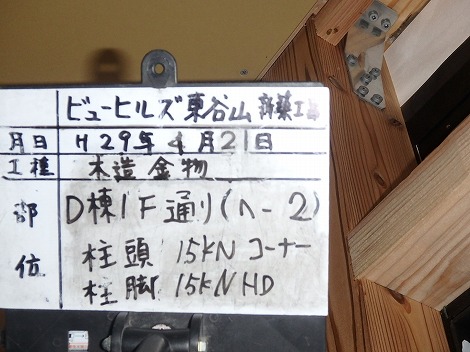 ビューヒルズ東谷山 新築工事
月日 H29年4月21日
工種 木造金物
部位 D棟1F通り(ハ-2)
柱頭 15KN コーナー
柱脚 15KN HD